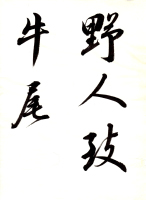 野人致
牛尾